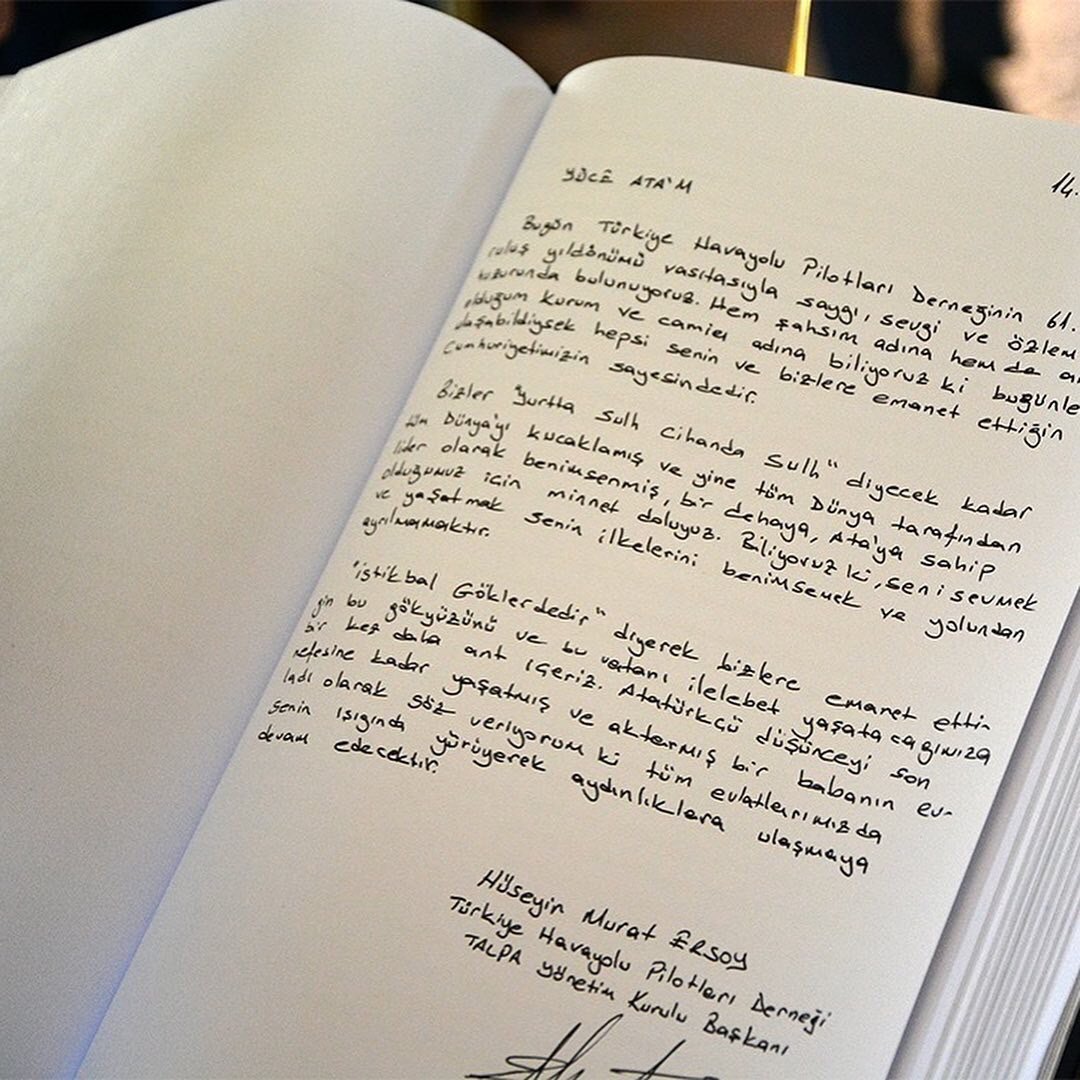 YÜCE ATA'M
14.
Bugün Türkiye Havayolu Pilotları Derneğinin 61.
ruluş yıldönümü vasıtasıyla saygı, sevgi ve özlem
huzurunda bulunuyoruz. Hem şahsım adına hem de
olduğum kurum ve camia adına biliyoruz ki bugünle
daşabildiysek hepsi senin ve bizlere emanet ettiğin
Cumhuriyetimizin sayesindedir.
Bizler "Yurtta Sulh Cihanda Sulh" diyecek kadar
tüm Dünya'yı kucaklamış ve yine tüm Dünya tarafından
lider olarak benimsenmiş, bir dehaya, Ata'ya sahip
olduğumuz için minnet doluyuz. Biliyoruz ki, seni sevmek
ve yaşatmak senin ilkelerini benimsemek ve yolundan
ayrılmamaktır.
"istikbal Göklerdedir" diyerek bizlere emanet etti-
ğin bu gökyüzünü ve bu vatanı ilelebet yaşatacağımıza
bir kez daha ant içeriz. Atatürkçü düşünceyi son
nefesine kadar yaşatmış ve aktarmış bir babanın ev-
ladı olarak söz veriyorum ki tüm evlatlarımızda
senin ışığında yürüyerek aydınlıklara ulaşmaya
devam edecektir.
Hüseyin Murat ERSOY
Türkiye Havayolu Pilotları Derneği
TALPA Yönetim Kurulu Başkanı